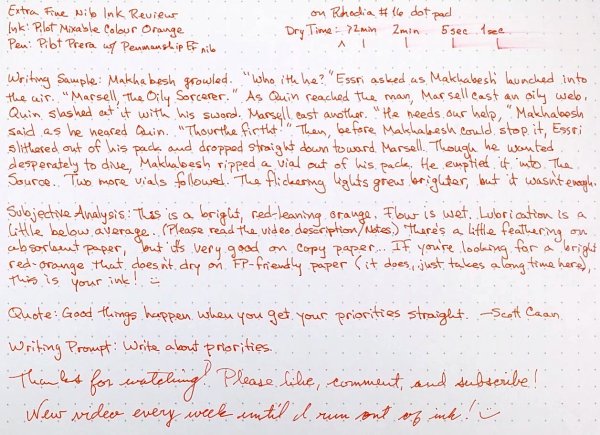 Extra Fine Nib Ink Review on Rhodia #16 dot pad
Ink: Pilot Mixable Colour Orange Dry Time: >2min 2min 5sec 1sec
Pen: Pilot Prera w/ Penmanship EF nib
Writing Sample: Makhabesh growled. "Who ith he?" Essri asked as Makhabesh launched into
the air. "Marsell, the Oily Sorcerer." As Quin reached the man, Marsell cast an oily web.
Quin slashed at it with his sword. Marsell cast another. "He needs our help," Makhabesh
said as he neared Quin. "Thourthe firtht!" Then, before Makhabesh could stop it, Essri
slithered out of his pack and dropped straight down toward Marsell. Though he wanted
desperately to dive, Makhabesh ripped a vial out of his pack. He emptied it into the
Source. Two more vials followed. The flickering lights grew brighter, but it wasn't enough.
Subjective Analysis: This is a bright, red-leaning orange. Flow is wet. Lubrication is a
little below average. (Please read the video description/Notes.) There's a little feathering on
absorbent paper, but it's very good on copy paper... If you're looking for a bright
red-orange that doesn't dry on FP-friendly paper (it does, just takes a long time here),
this is your ink! :)
Quote: Good things happen when you get your priorities straight. —Scott Caan
Writing Prompt: Write about priorities.
Thanks for watching! Please like, comment, and subscribe!
New video every week until I run out of ink! :)